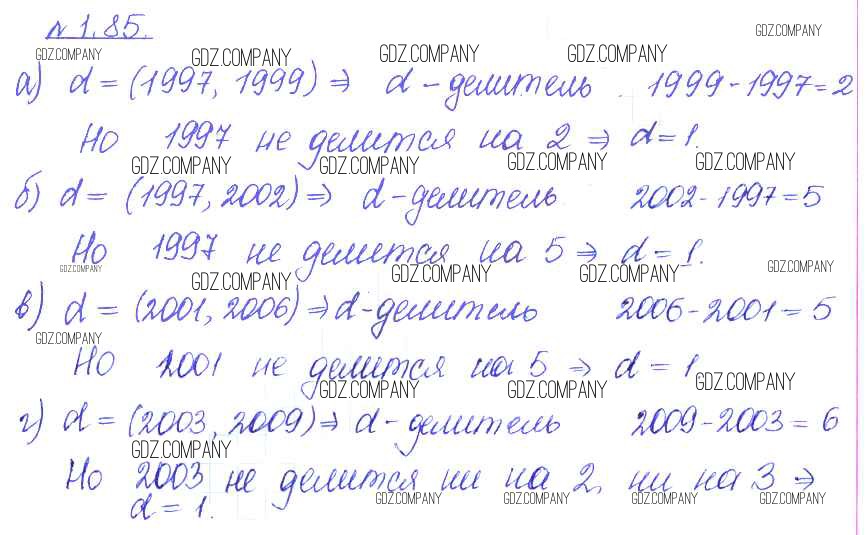 № 1.85.
GDZ.COMPANY GDZ.COMPANY GDZ.COMPANY GDZ.COMPANY GDZ.COMPANY
а) d = (1997, 1999) ⇒ d - делитель 1999 - 1997 = 2
Но 1997 не делится на 2 ⇒ d = 1.
GDZ.COMPANY GDZ.COMPANY GDZ.COMPANY GDZ.COMPANY
б) d = (1997, 2002) ⇒ d - делитель 2002 - 1997 = 5
Но 1997 не делится на 5 ⇒ d = 1.
GDZ.COMPANY GDZ.COMPANY GDZ.COMPANY GDZ.COMPANY GDZ.COMPANY
в) d = (2001, 2006) ⇒ d - делитель 2006 - 2001 = 5
GDZ.COMPANY
Но 2001 не делится на 5 ⇒ d = 1
GDZ.COMPANY GDZ.COMPANY GDZ.COMPANY
г) d = (2003, 2009) ⇒ d - делитель 2009 - 2003 = 6
GDZ.COMPANY
Но 2003 не делится ни на 2, ни на 3 ⇒
GDZ.COMPANY GDZ.COMPANY GDZ.COMPANY GDZ.COMPANY
d = 1.